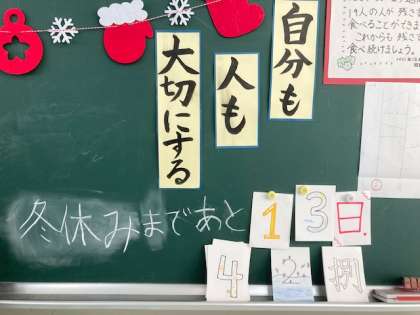 自分も
人も
大切にする
冬休みまであと
13日
4
2
捌
19人の人が残さず
食べることができ
これからも残さ
食べ続けましょう。